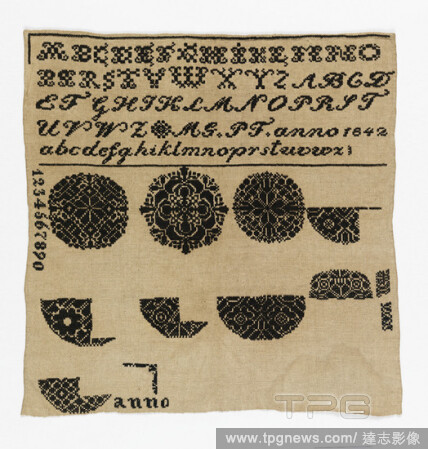 ABCDEFGHIKLMNO
PQRSTVWXYZ ABCD
EFGHIKLMNOPRST
UVWZ MG. PF. anno 1842
abcdefghiklmnoprstuvwxz
1234567890
anno
TPG
www.tpgnews.com/ 達志影像